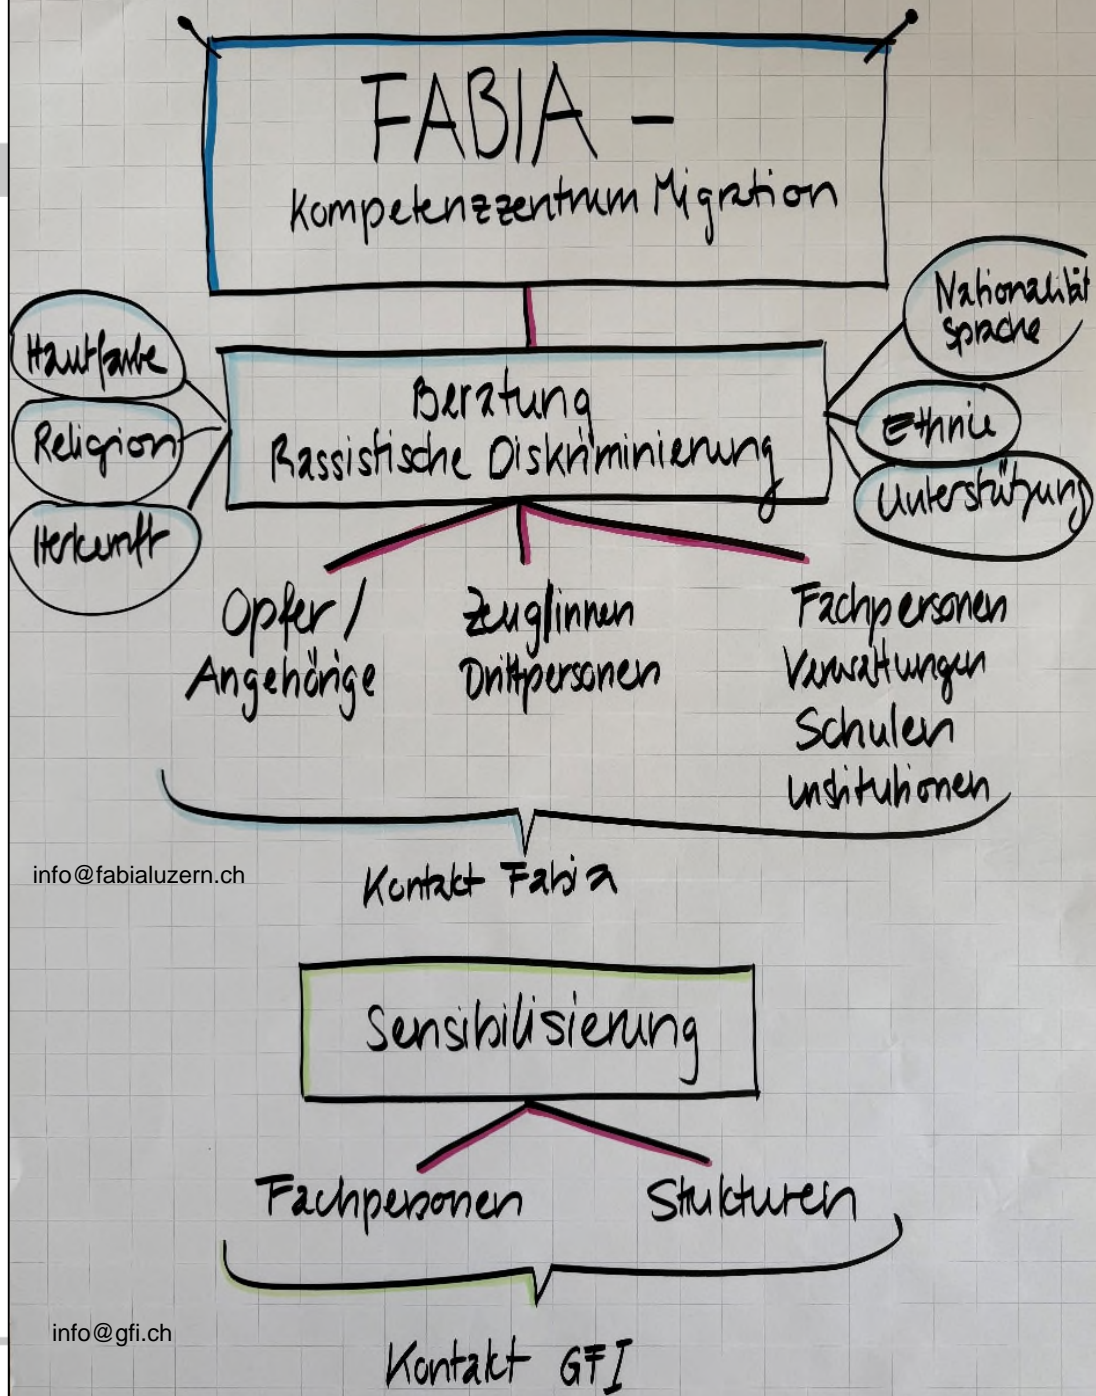 FABIA -
Kompetenzzentrum Migration
Nationalität
Sprache
Hautfarbe
Religion
Herkunft
Beratung
Rassistische Diskriminierung
Ethnie
Unterstützung
Opfer /
Angehörige
Zeug/innen
Drittpersonen
Fachpersonen
Verwaltungen
Schulen
Institutionen
info@fabialuzern.ch
Kontakt Fabia
Sensibilisierung
Fachpersonen
Strukturen
info@gfi.ch
Kontakt GFI